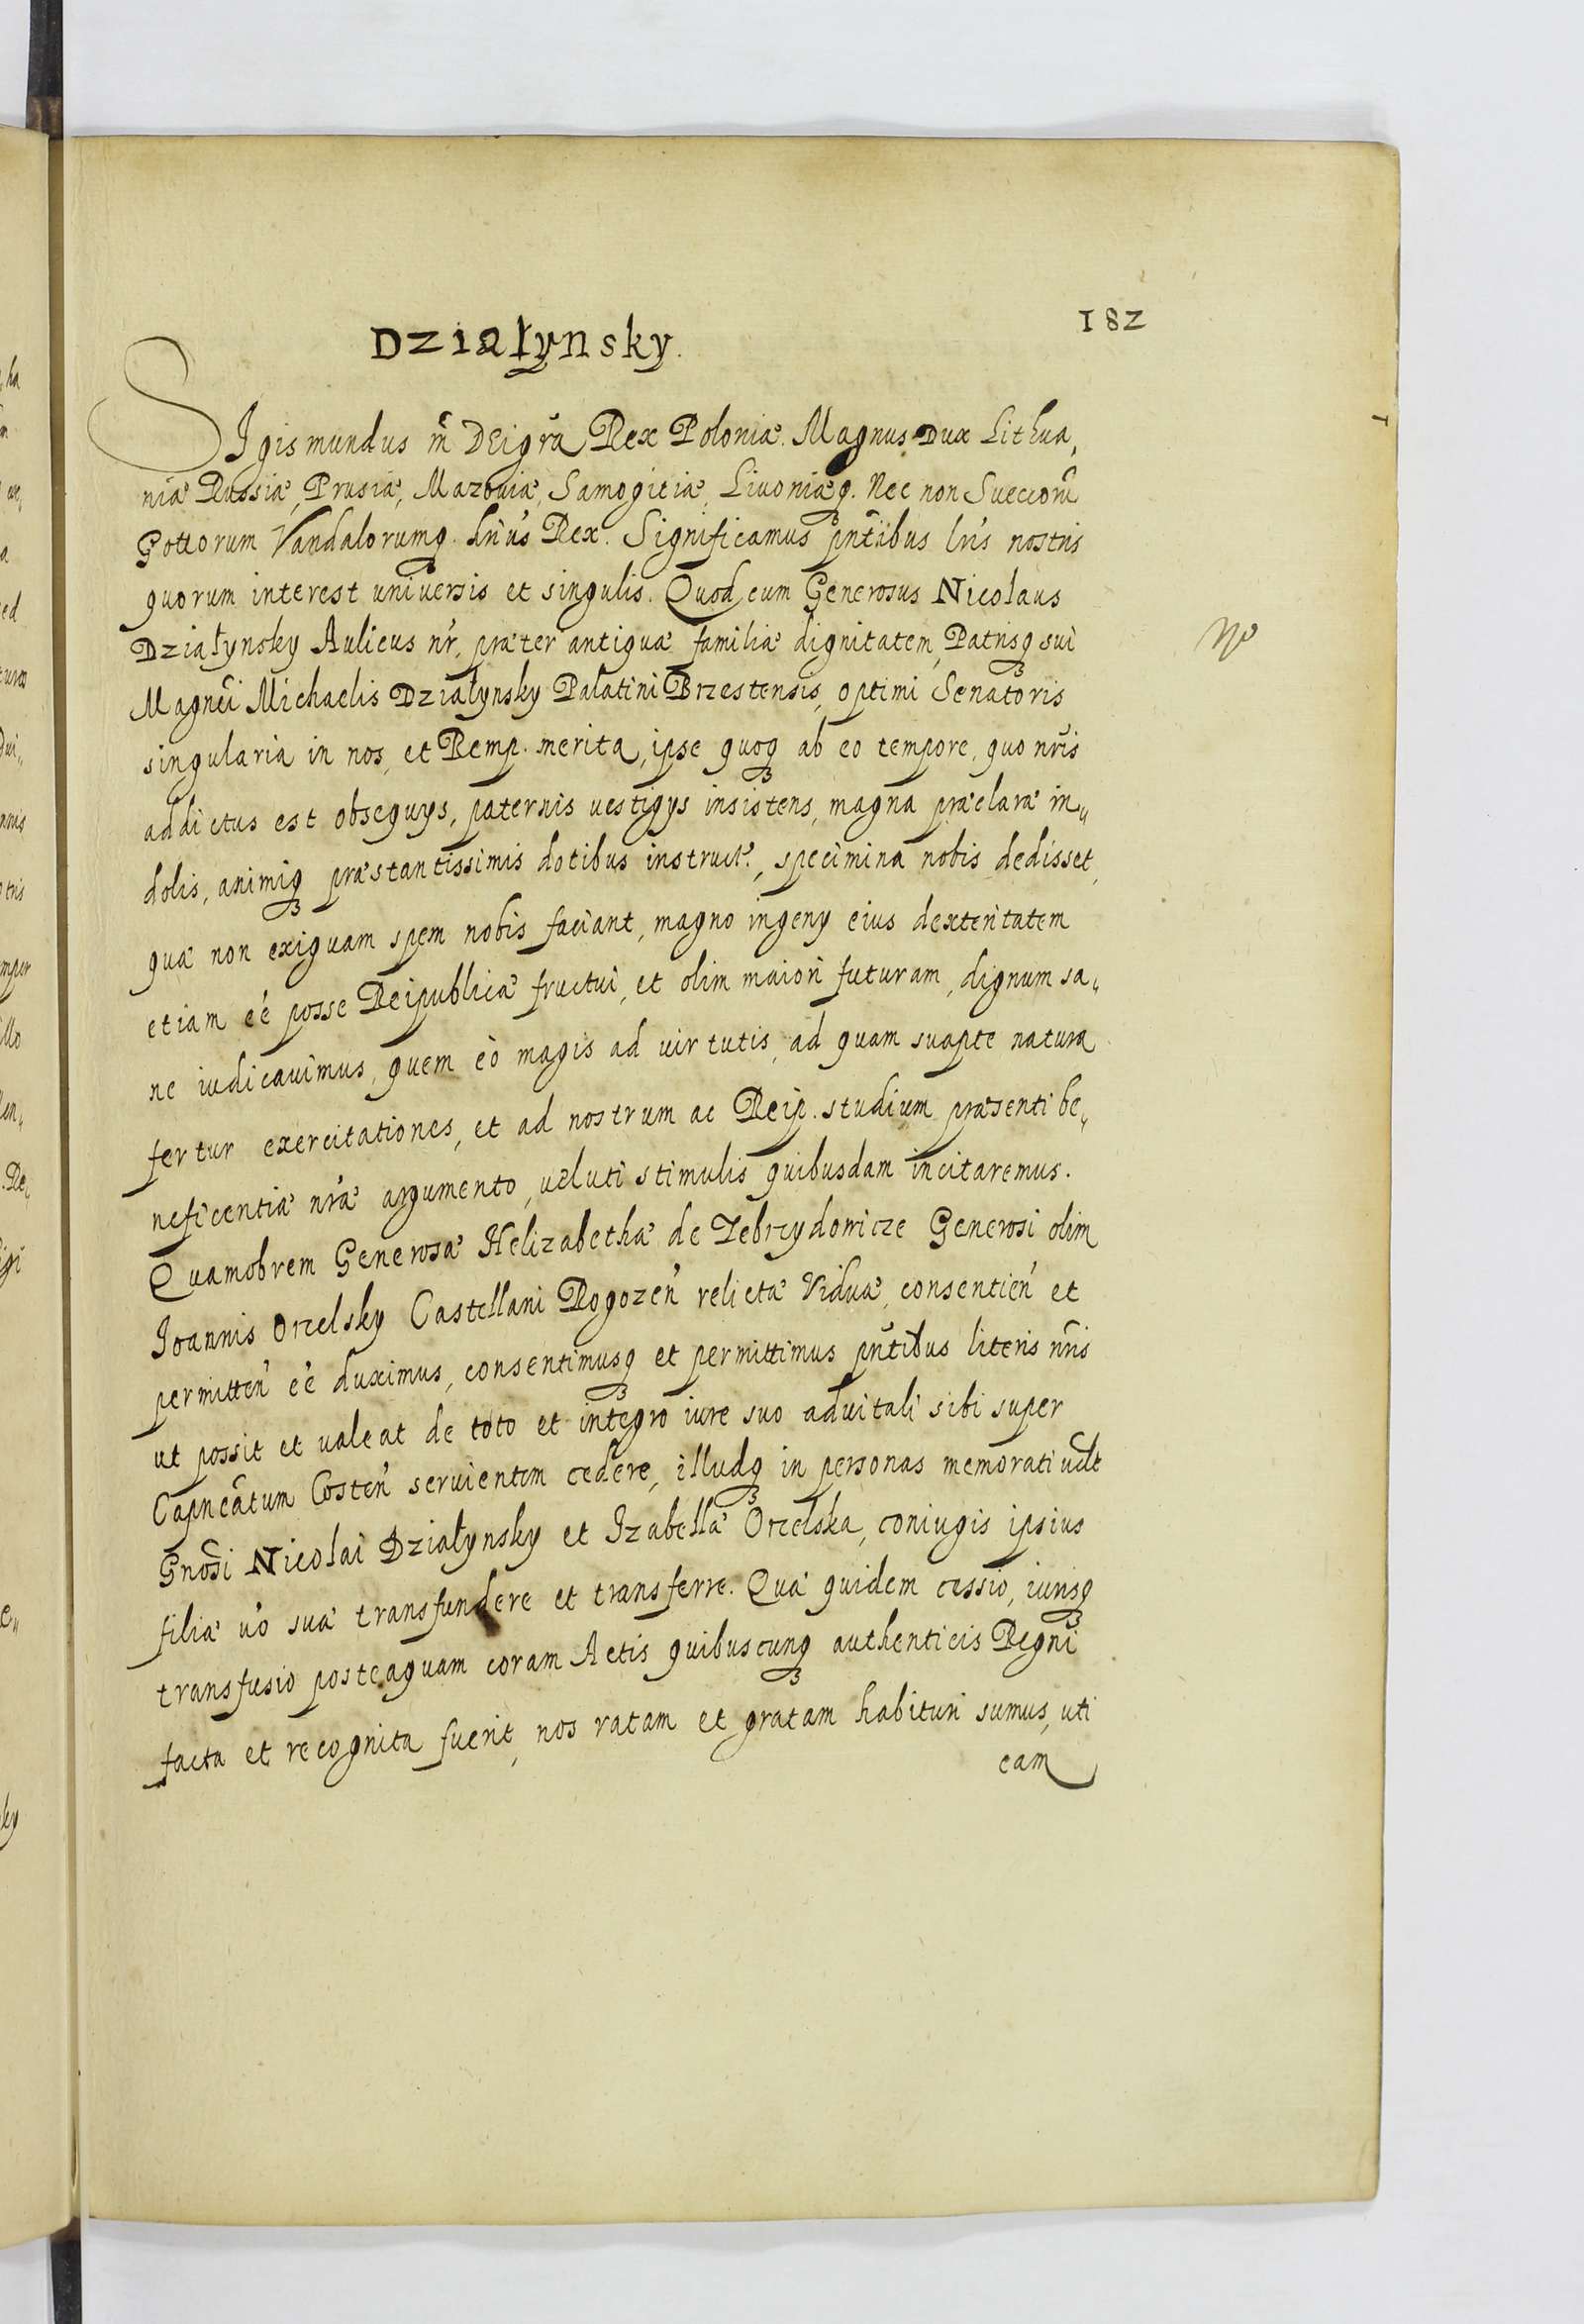 182
Działynsky.
SIgismundus m̃ DEigr̃a Rex Poloniæ. Magnus Dux Lithua„
niæ Russiæ, Prusiæ, Mazoviæ, Samogitiæ, Livoniæq. Nec non Sueccorũ
Gottorum Vandalorumq. hr̃us Rex. Significamus pñtibus lr̃is nostris
quorum interest universis et singulis. Quod cum Generosus Nicolaus
Działynsky Aulicus nr̃, præter antiquæ familiæ dignitatem, Patrisq sui
Magnci Michaelis Działynsky Palatini Brzestensis, optimi Senatoris
singularia in nos, et Remp. merita, ipse quoq ab eo tempore, quo nr̃is
addictus est obsequys, paternis vestigys insistens, magna præclaræ in„
dolis, animiq præstantissimis dotibus instructi, specimina nobis dedisset,
quæ non exiguam spem nobis faciant, magno ingeny eius dexteritatem
etiam eẽ posse Reipublicæ fructui, et olim maiori futuram, dignum sa„
ne iudicavimus, quem eò magis ad virtutis, ad quam suapte natura
fertur exercitationes, et ad nostrum ac Reip. studium præsenti be„
neficentiæ nr̃æ argumento, veluti stimulis quibusdam incitaremus.
Quamobrem Generosæ Helizabethæ de Zebrzydowicze Generosi olim
Joannis Orzelsky Castellani Rogozeñ relictæ Viduæ, consentieñ et
permitteñ eẽ duximus, consentimusq et permittimus pñtibus literis nr̃is
ut possit et valeat de toto et integro iure suo advitali sibi super
Capneatum Costeñ servientem cedere, illudq in personas memorati vdlt
Gnõsi Nicolai Działynsky et Izabellæ Orzelska, coniugis ipsius
filiæ võ suæ transfundere et transferre. Quæ quidem cessio, iurisq
transfusio posteaquam coram Actis quibuscunq authenticis Regni
facta et recognita fuerit, nos ratam et gratam habituri sumus, uti
eam